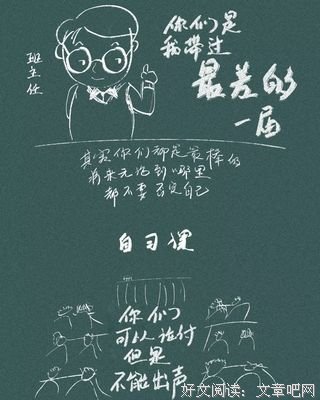 班主任
你们是
我带过
最差的
一届
其实你们都是最棒的
将来无论到哪里
都不要否定自己
自习课
你们
可以说付
但是
不能出声
好文阅读：文章吧网